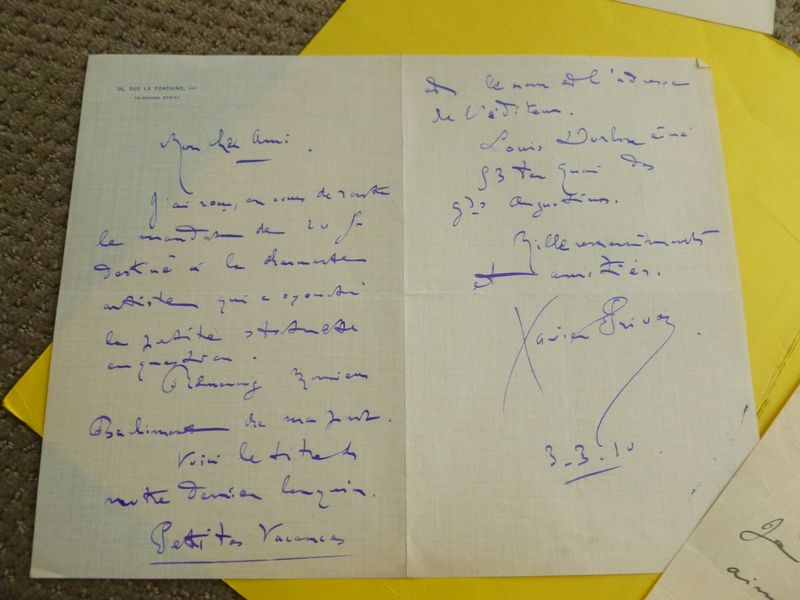 RUE LA FONTAINE, XVIe
TELEPHONE
Mon cher Ami.
J'ai reçu, en cours de route
le mandat de 20 f
destiné à la charmante
artiste qui a exécuté
la petite statuette
en question.
Remerciez
de ma part.
Voici le titre de
notre dernier bouquin.
Petites Vacances
et le nom et l'adresse
de l'éditeur.
Louis Aîné
53 ter quai des
gds Augustins.
Mille remerciements
et amitiés.
Xavier Privas.
3_3_10.
Je